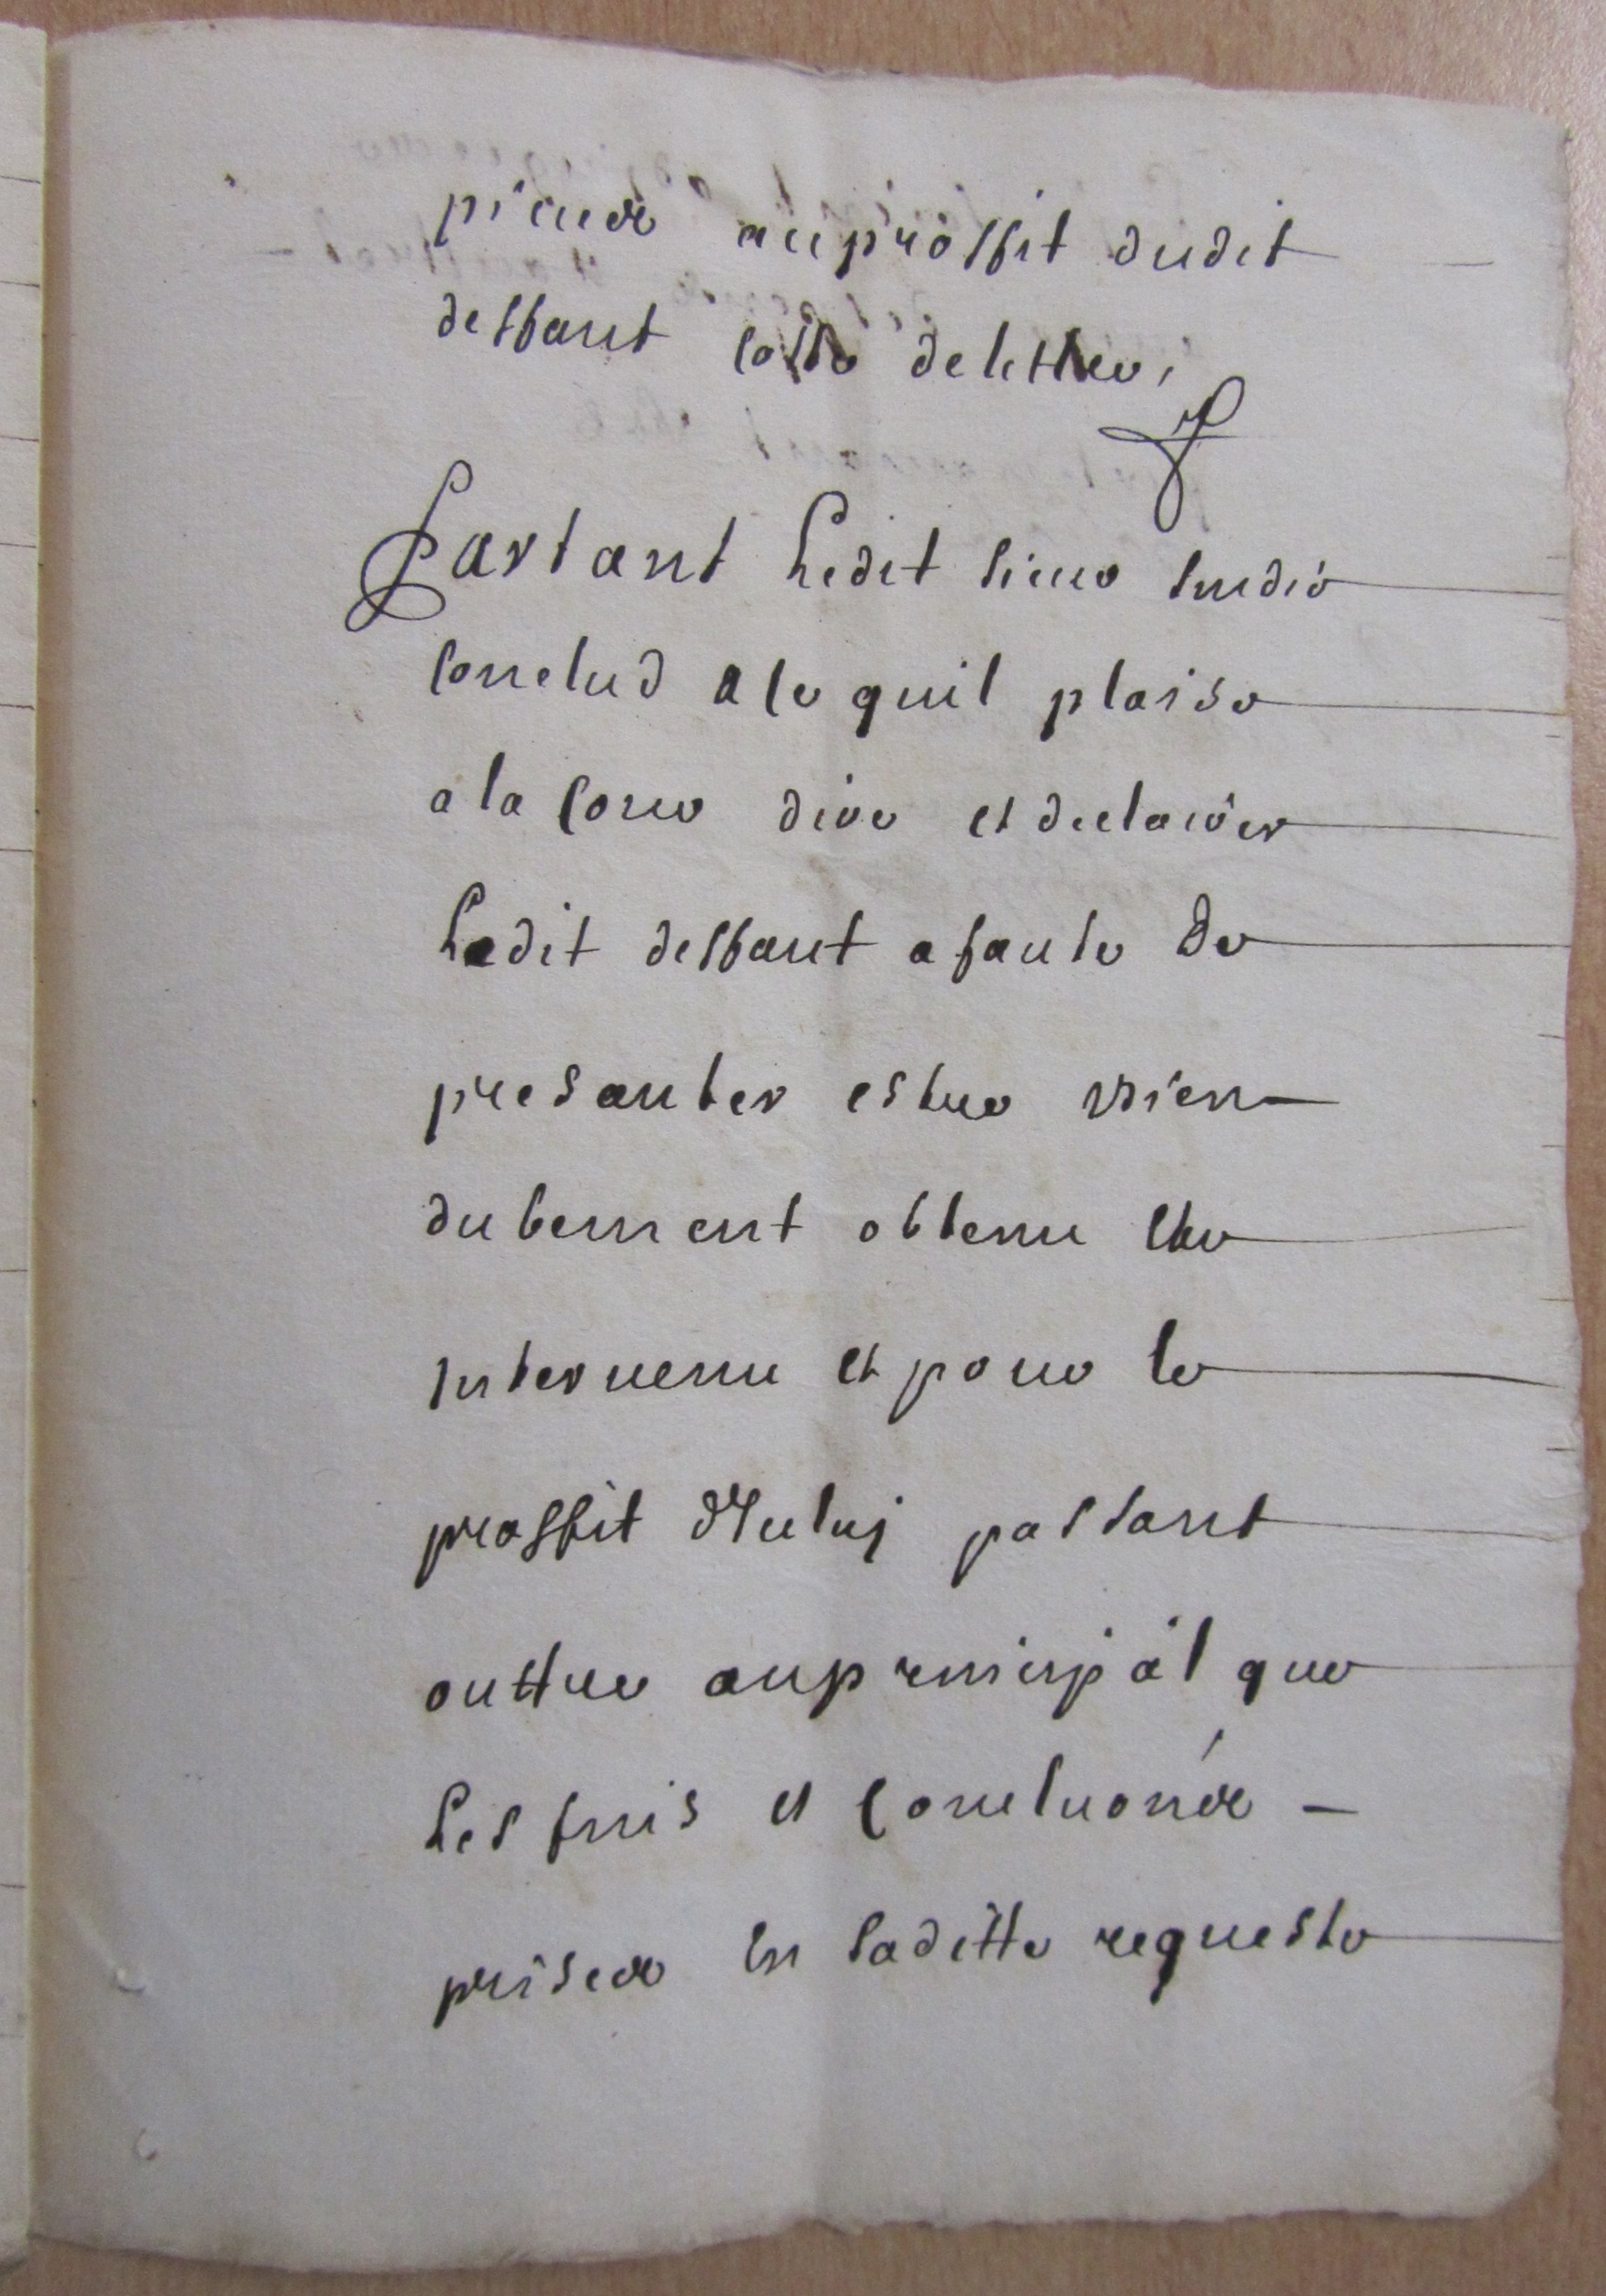 pieces au proffit dudit
deffaut cotté de lettre,
F
Partant Ledit sieur sindic
conclud a ce quil plaise
a la Cour dire et declairer
Ledit deffaut a faute de
presanter estre bien
dubement obtenu et
Intervenu et pour le
proffit d'Iceluj passant
outtre au principal que
Les fins et Concluons
prises en sa ditte requeste